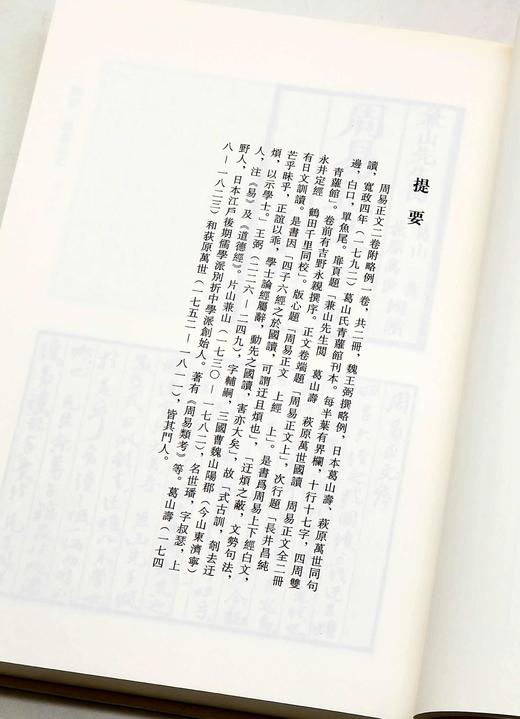 提要
周易正文二卷附略例一卷，共二冊，魏王弼撰略例，日本葛山壽、萩原萬世同句
讀，寬政四年（一七九二）葛山氏青蘿館刊本。每半葉有界欄，十行十七字，四周雙
邊，白口，單魚尾。扉頁題「兼山先生閱　葛山壽　萩原萬世國讀　周易正文全二冊
青蘿館」。卷前有吉野永親撰序。正文卷端題「周易正文上」，次行題「長井昌純
永井定經　鶴田千里同校」。版心題「周易正文　上經　上」。是書爲周易上下經白文，
有日文訓讀。是書因「四子六經之於國讀，可謂迂且煩也」，「迂煩之蔽，文勢句法，
芒乎昧乎，正誼以乖，學士論經屬辭，動先之國讀，害亦大矣」，故「式古訓，剞去迂
煩，以示學士」。王弼（二二六－二四九），字輔嗣，三國曹魏山陽郡（今山東濟寧）
人，注《易》及《道德經》。片山兼山（一七三〇－一七八二），名世璠，字叔瑟，上
野人，日本江戶後期儒學派別折中學派創始人。著有《周易類考》等。葛山壽（一七四
八－一八二三）和萩原萬世（一七五二－一八一一），皆其門人。